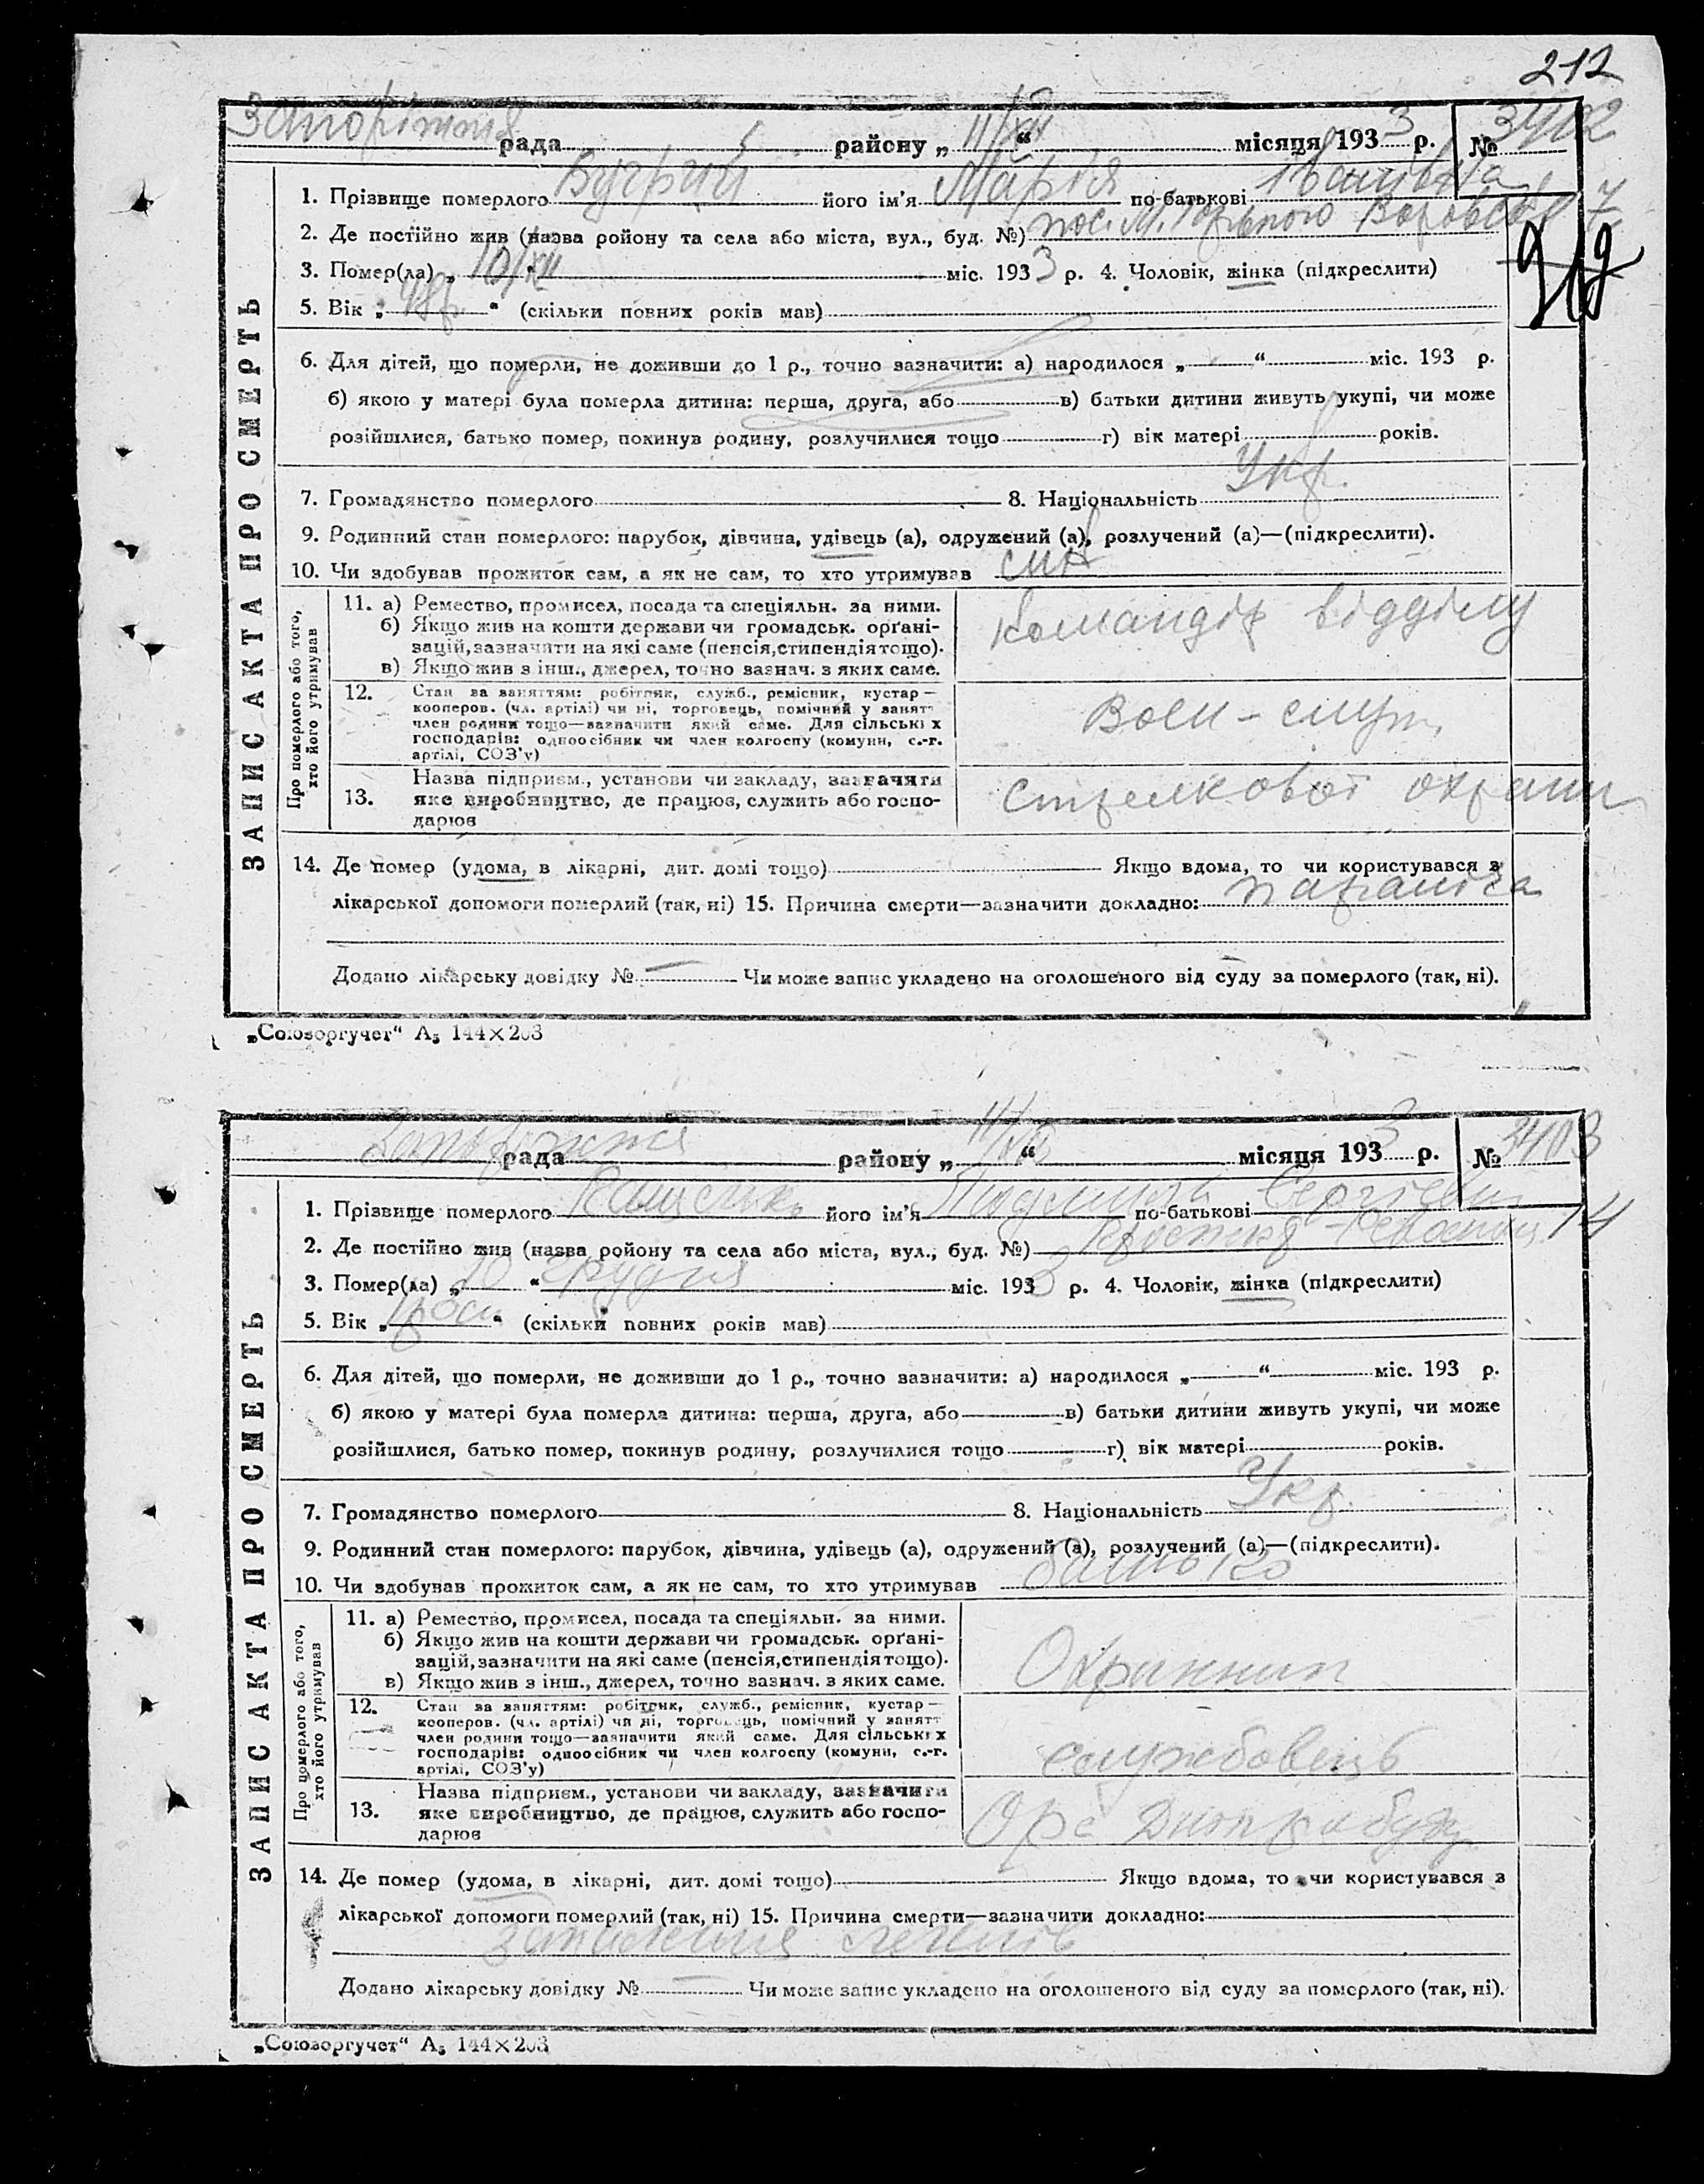 212
Запоріжжя рада району „ 11/XII “ місяця 1933 р. № 3402
1. Прізвище померлого його ім'я Марія по-батькові Іванівна
2. Де постійно жив (назва ройону та села або міста, вул., буд. №) пос. М. Горького 7
3. Помер(ла) „ 10/XII “ міс. 1933 р. 4. Чоловік, жінка (підкреслити)
212
5. Вік „ “ (скільки повних років мав)
6. Для дітей, що померли, не доживши до 1 р., точно зазначити: а) народилося „ “ міс. 193 р.
б) якою у матері була померла дитина: перша, друга, або в) батьки дитини живуть укупі, чи може
розійшлися, батько помер, покинув родину, розлучилися тощо г) вік матері років.
7. Громадянство померлого 8. Національність Укр.
9. Родинний стан померлого: парубок, дівчина, удівець (а), одружений (а), розлучений (а)—(підкреслити).
10. Чи здобував прожиток сам, а як не сам, то хто утримував син
ЗАПИС АКТА ПРО СМЕРТЬ
Про померлого або того, хто його утримував
11. а) Ремество, промисел, посада та спеціяльн. за ними.
б) Якщо жив на кошти держави чи громадськ. орґані-
зацій, зазначити на які саме (пенсія, стипендія тощо).
в) Якщо жив з інш., джерел, точно зазнач. з яких саме.
командір відділу
12. Стан за заняттям: робітник, служб., ремісник, кустар—
кооперов. (чл. артілі) чи ні, торговець, помічний у занят-
член родини тощо—зазначити який саме. Для сільських
господарів: одноосібник чи член колгоспу (комуни, с.-г.
артілі, СОЗ'у)
Воен-служ.
13. Назва підприєм., установи чи закладу, зазначити
яке виробництво, де працює, служить або госпо-
дарює
стрелкової охрани
14. Де помер (удома, в лікарні, дит. домі тощо) Якщо вдома, то чи користувався з
лікарської допомоги померлий (так, ні) 15. Причина смерти—зазначити докладно: параліча
Додано лікарську довідку № — Чи може запис укладено на оголошеного від суду за померлого (так, ні).
„Союзоргучет“ А₅ 144×203
Запоріжжя рада району „ 11/XII “ місяця 1933 р. № 3403
1. Прізвище померлого його ім'я Людмила по-батькові Сергіївна
2. Де постійно жив (назва ройону та села або міста, вул., буд. №) 14
3. Помер(ла) „ 10 “ грудня міс. 1933 р. 4. Чоловік, жінка (підкреслити)
5. Вік „ “ (скільки повних років мав)
6. Для дітей, що померли, не доживши до 1 р., точно зазначити: а) народилося „ “ міс. 193 р.
б) якою у матері була померла дитина: перша, друга, або в) батьки дитини живуть укупі, чи може
розійшлися, батько помер, покинув родину, розлучилися тощо г) вік матері років.
7. Громадянство померлого 8. Національність Укр.
9. Родинний стан померлого: парубок, дівчина, удівець (а), одружений (а), розлучений (а)—(підкреслити).
10. Чи здобував прожиток сам, а як не сам, то хто утримував батько
ЗАПИС АКТА ПРО СМЕРТЬ
Про померлого або того, хто його утримував
11. а) Ремество, промисел, посада та спеціяльн. за ними.
б) Якщо жив на кошти держави чи громадськ. орґані-
зацій, зазначити на які саме (пенсія, стипендія тощо).
в) Якщо жив з інш., джерел, точно зазнач. з яких саме.
12. Стан за заняттям: робітник, служб., ремісник, кустар—
кооперов. (чл. артілі) чи ні, торговець, помічний у занят-
член родини тощо—зазначити який саме. Для сільських
господарів: одноосібник чи член колгоспу (комуни, с.-г.
артілі, СОЗ'у)
службовець
13. Назва підприєм., установи чи закладу, зазначити
яке виробництво, де працює, служить або госпо-
дарює
Орс Дніпробуду
14. Де помер (удома, в лікарні, дит. домі тощо) Якщо вдома, то чи користувався з
лікарської допомоги померлий (так, ні) 15. Причина смерти—зазначити докладно:
запалення легенів
Додано лікарську довідку № — Чи може запис укладено на оголошеного від суду за померлого (так, ні).
„Союзоргучет“ А₅ 144×203